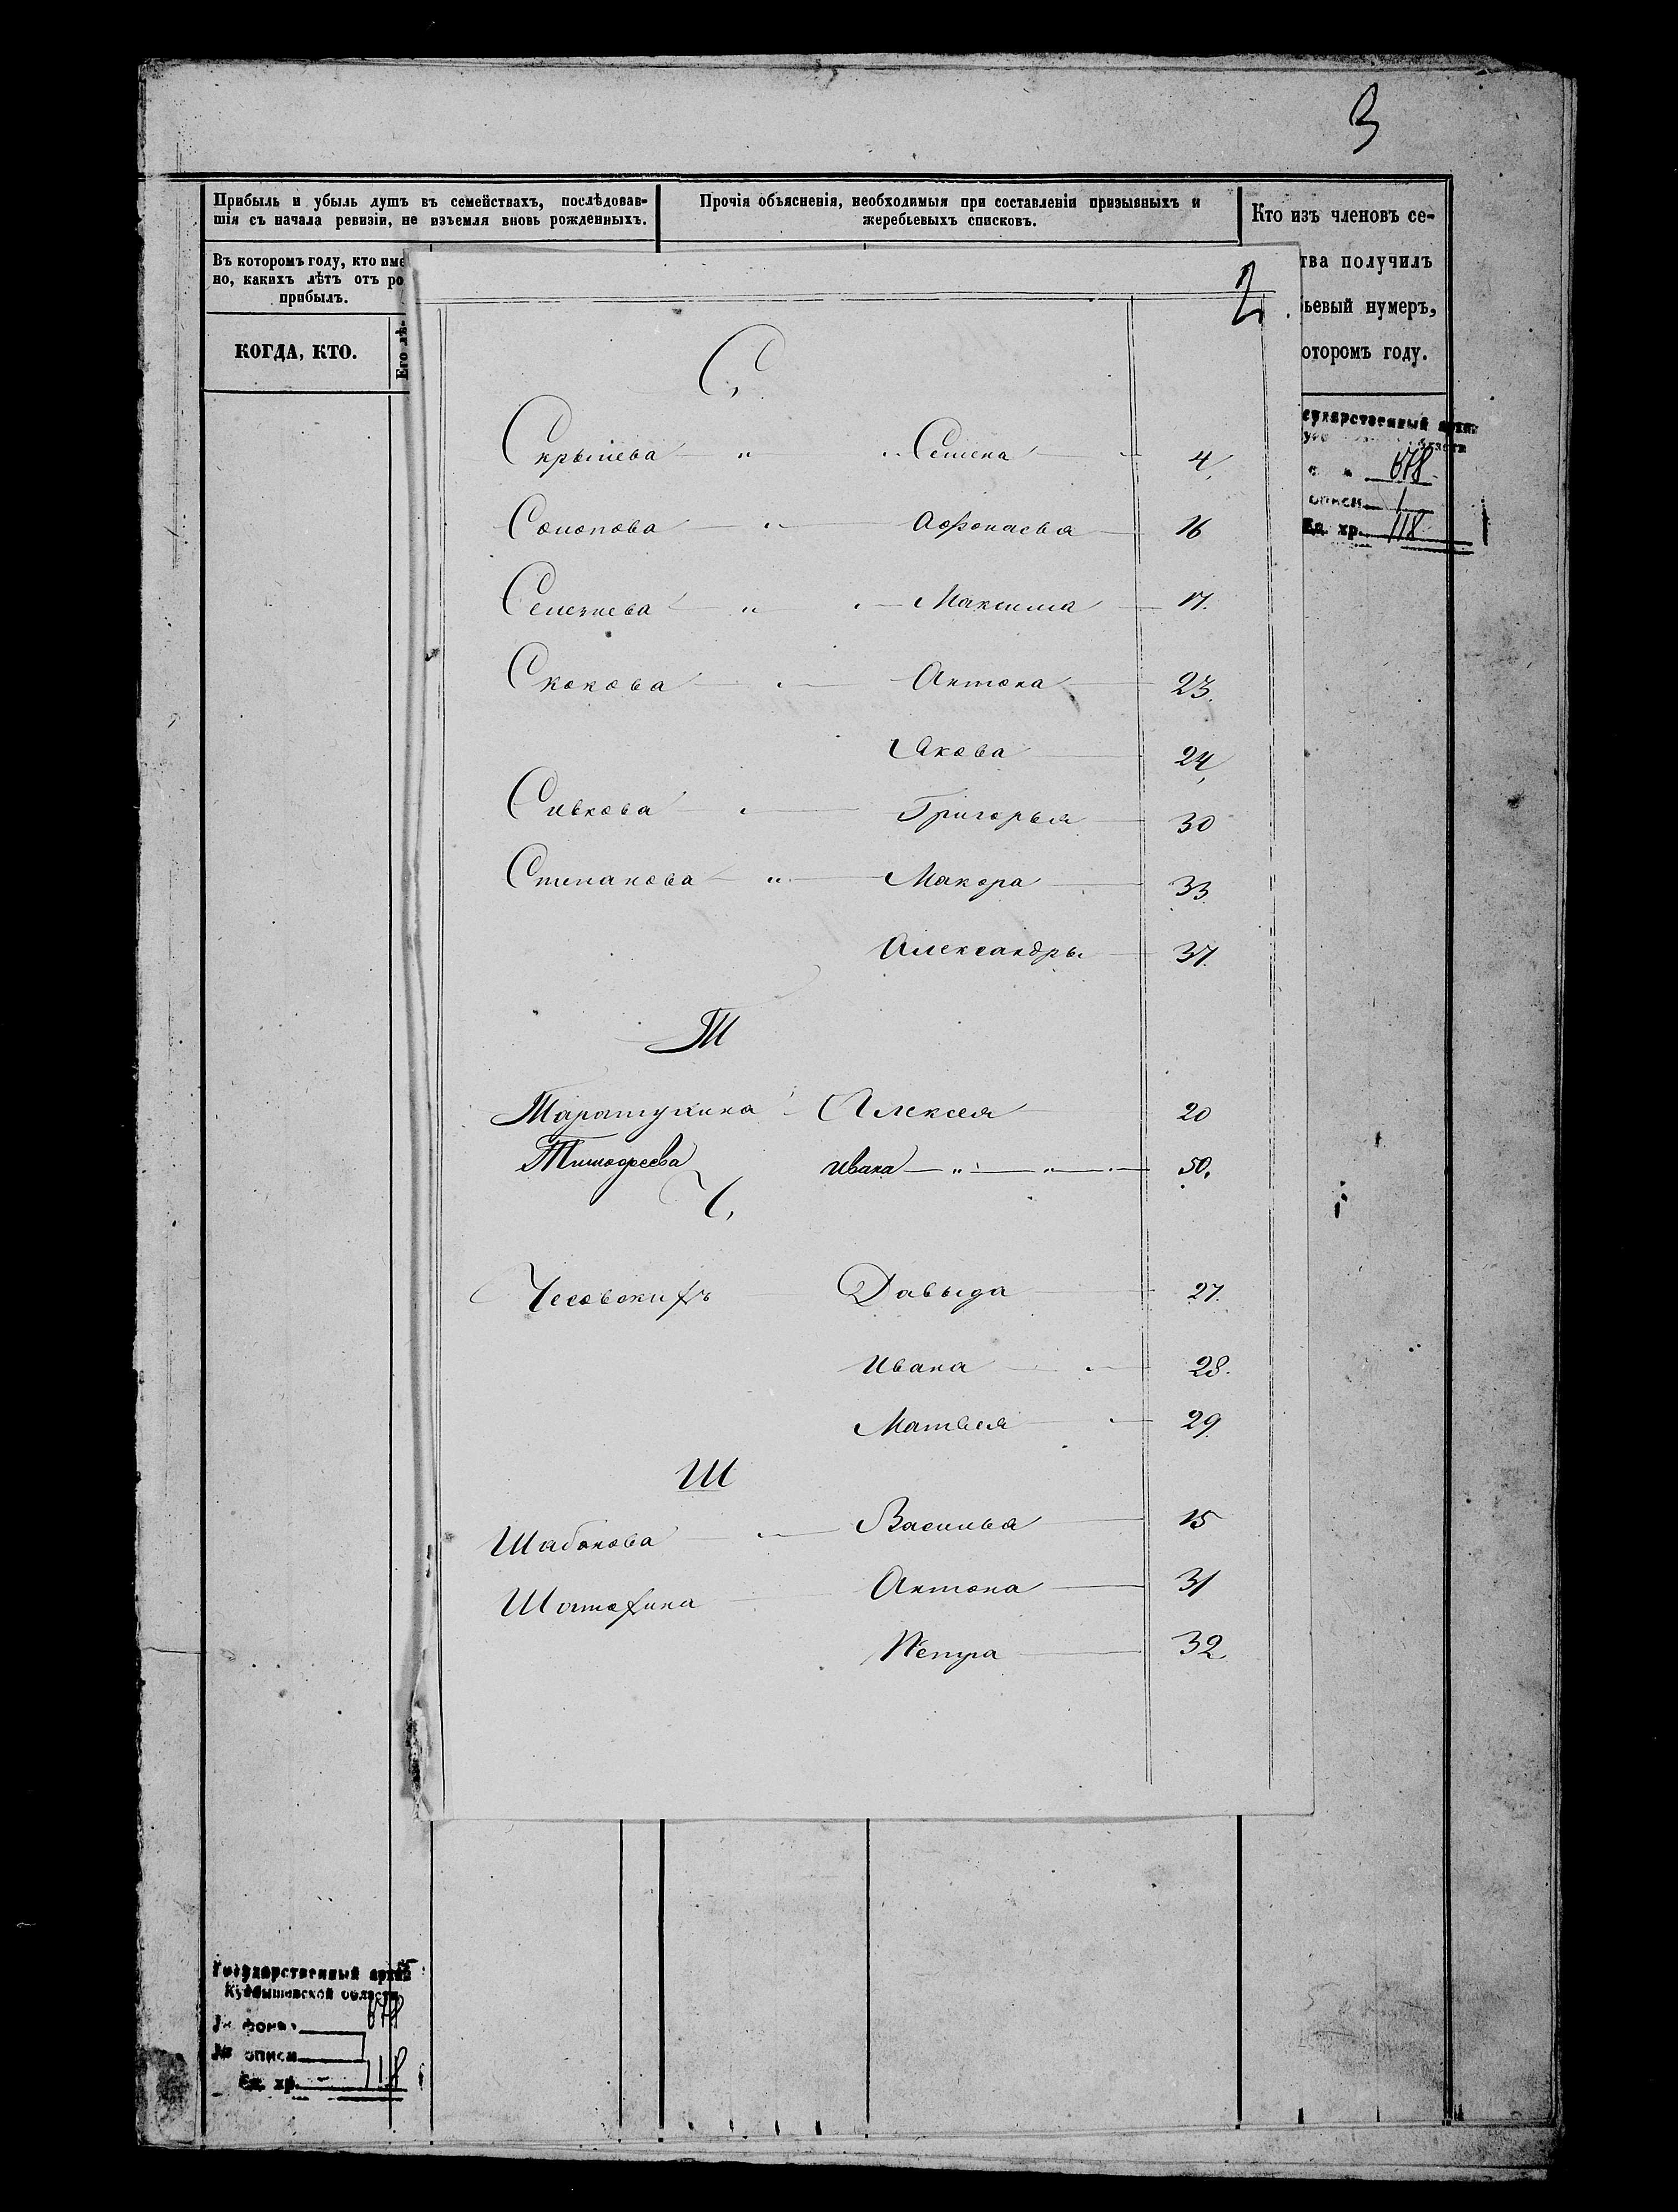 3
Прибыль и убыль душъ въ семействахъ, послѣдовав-
шія съ начала ревизіи, не изъемля вновь рожденныхъ.
Прочія объясненія, необходимыя при составленіи призывныхъ и
жеребьевыхъ списковъ.
Кто изъ членовъ се-
тва получилъ
ьевый нумеръ,
оторомъ году.
Въ которомъ году, кто име
но, какихъ лѣтъ отъ ро
прибылъ.
КОГДА, КТО.
Его лѣ-
2.
С,
Скрыпева Семена 4,
Афонасья 16
Селезнева Максима 17.
Скокова Антона 23.
Якова 24,
Сивкова Григорья 30
Степанова Макара 33
Александры 37.
Т
Таратухина Алексея 20
Тимофеева Ивана 50.
Ч,
Чесовскихъ Давыда 27.
Ивана 28.
Матвея 29
Ш
Шабанова Василья 15
Шатохина Антона 31
Петра 32
сударственный архив
678
описи 1
Ед. хр. 118
Государственный архив
Куйбышевской области
№ фонд 678
№ описи 1
Ед. хр. 118